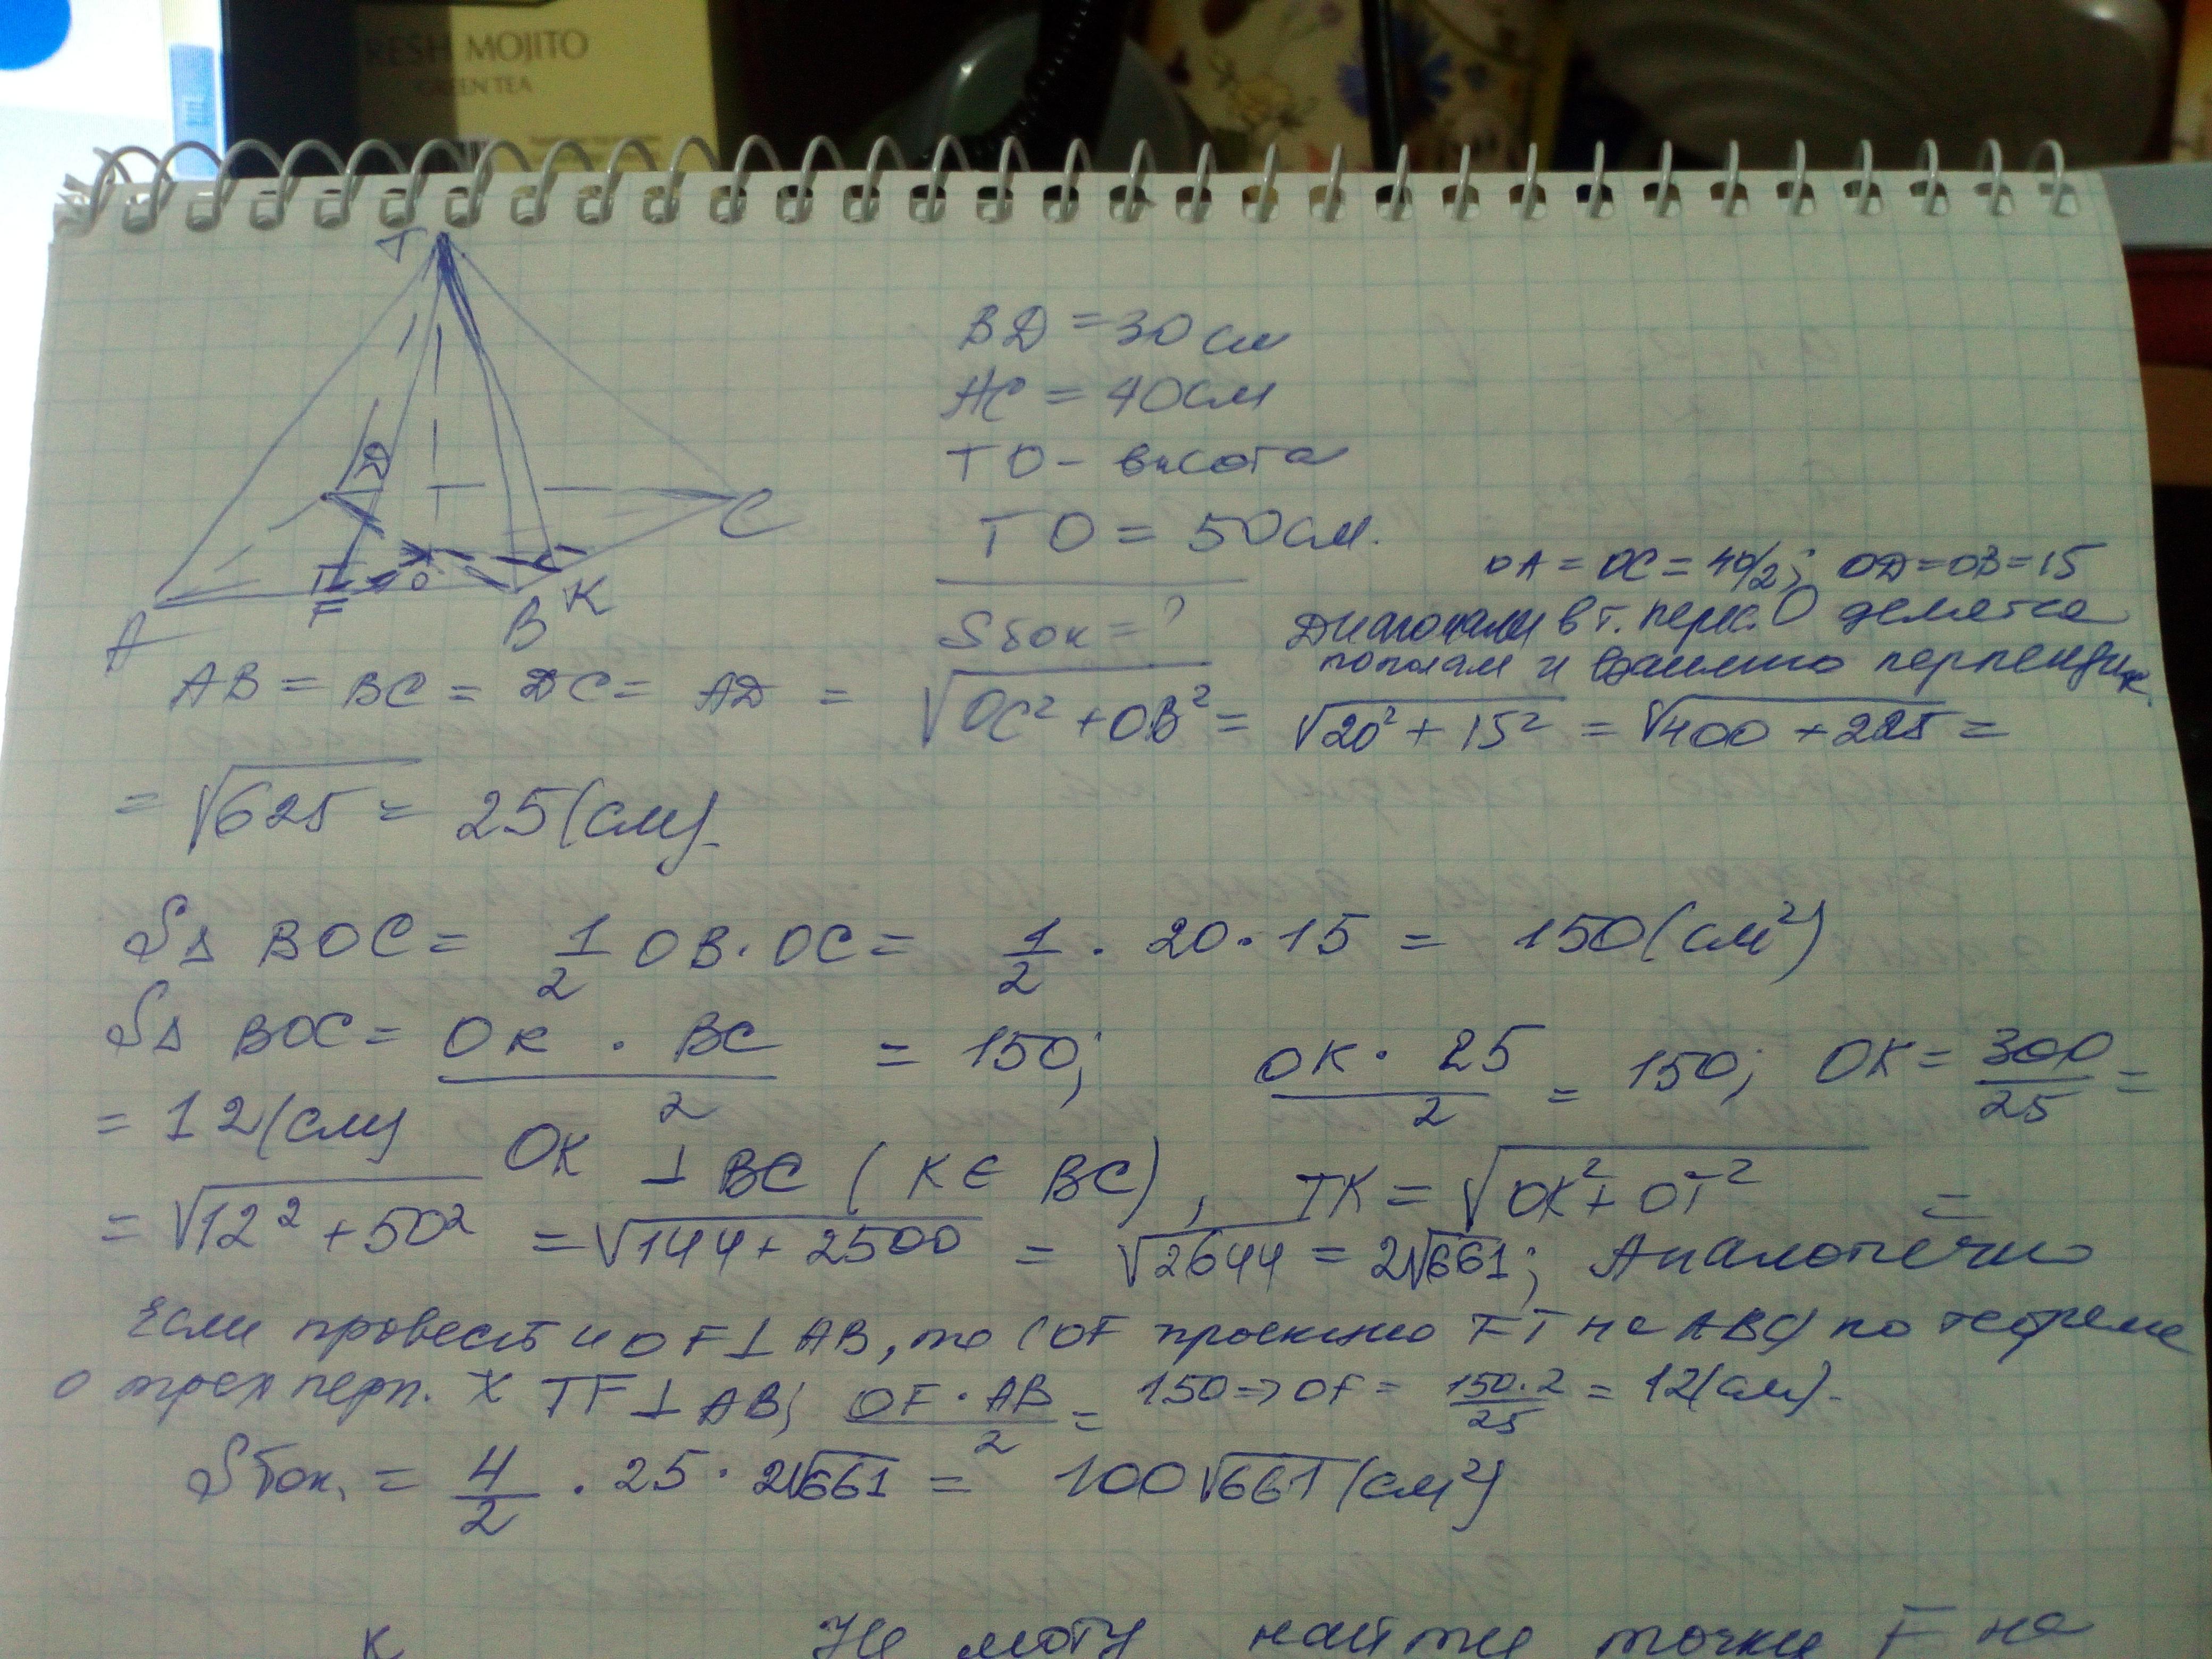 RESH MOJITO
GREEN TEA
T
D
O
F
A
B
K
C
BD = 30 см
AC = 40 см
TO - высота
TO = 50 см.
Sбок = ?
OA = OC = 40/2; OD = OB = 15
Диагонали в т. перес. O делятся
пополам и взаимно перпендик.
AB = BC = DC = AD = √OC² + OB² = √20² + 15² = √400 + 225 =
= √625 = 25 (см).
S△ BOC = 1/2 OB · OC = 1/2 · 20 · 15 = 150 (см²)
S△ BOC = OK · BC / 2 = 150; OK · 25 / 2 = 150; OK = 300/25 =
= 12 (см) OK ⊥ BC (K ∈ BC), TK = √OK² + OT² =
= √12² + 50² = √144 + 2500 = √2644 = 2√661; Аналогично
Если провести и OF ⊥ AB, то (OF проекция FT на ABC) по теореме
о трех перп. TF ⊥ AB; OF · AB / 2 = 150 => OF = 150·2/25 = 12 (см).
Sбок. = 4/2 · 25 · 2√661 = 100√661 (см²)
K Не могу найти точки F на